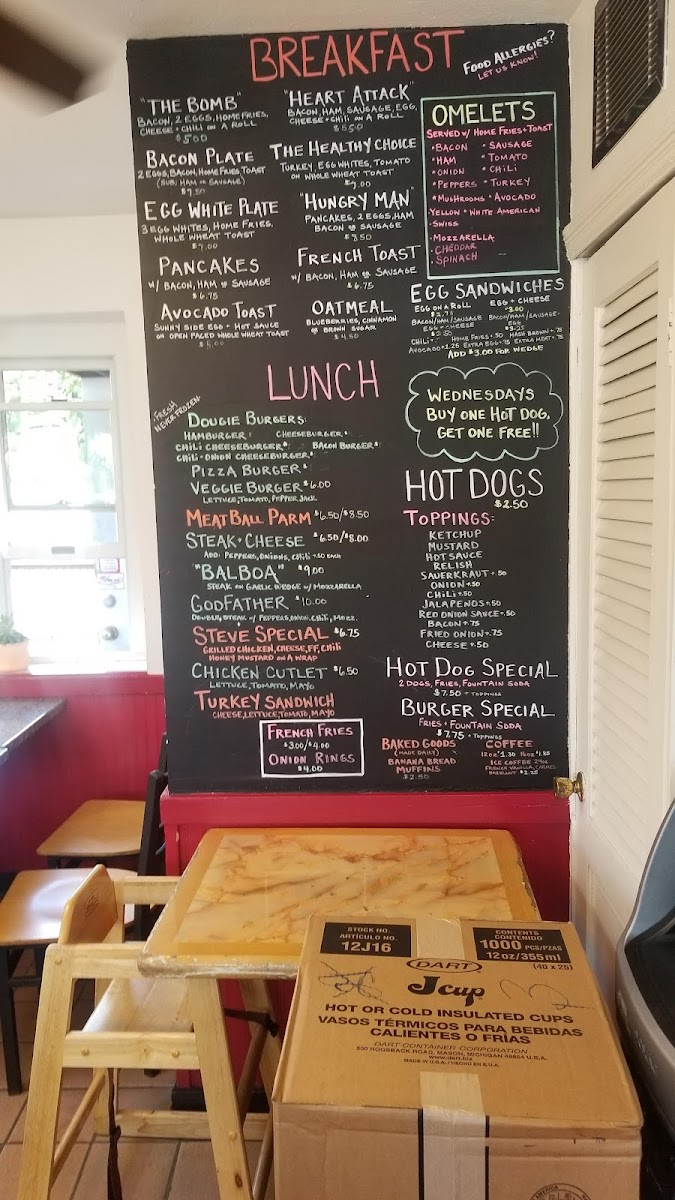 BREAKFAST
FOOD ALLERGIES?
LET US KNOW!
"THE BOMB"
BACON, 2 EGGS, HOME FRIES,
CHEESE + CHILI ON A ROLL
BACON PLATE
2 EGGS, BACON, HOME FRIES, TOAST
(SUB: HAM OR SAUSAGE)
EGG WHITE PLATE
3 EGG WHITES, HOME FRIES,
WHOLE WHEAT TOAST
$7.00
PANCAKES
W/ BACON, HAM OR SAUSAGE
$6.75
AVOCADO TOAST
SUNNY SIDE EGG - HOT SAUCE
ON OPEN FACED WHOLE WHEAT TOAST
"HEART ATTACK"
BACON, HAM, SAUSAGE, EGG,
CHEESE + CHILI ON A ROLL
THE HEALTHY CHOICE
TURKEY, EGG WHITES, TOMATO
ON WHOLE WHEAT TOAST
"HUNGRY MAN"
PANCAKES, 2 EGGS, HAM
BACON OR SAUSAGE
FRENCH TOAST
W/ BACON, HAM OR SAUSAGE
$6.75
OATMEAL
BLUEBERRIES, CINNAMON
OR BROWN SUGAR
OMELETS
SERVED W/ HOME FRIES + TOAST
• BACON • SAUSAGE
• HAM • TOMATO
• ONION • CHILI
• PEPPERS • TURKEY
• MUSHROOMS • AVOCADO
• YELLOW • WHITE AMERICAN
• SWISS
• MOZZARELLA
• CHEDDAR
• SPINACH
EGG SANDWICHES
EGG ON A ROLL
BACON/HAM/SAUSAGE
EGG + CHEESE
EGG + CHEESE
BACON/HAM/SAUSAGE-
EGG
HOME FRIES .50 HASH BROWN .75
AVOCADO 1.25 EXTRA EGG .75 EXTRA MEAT .75
ADD $3.00 FOR WEDGE
LUNCH
• FRESH
NEVER FROZEN •
DOUGIE BURGERS:
HAMBURGER CHEESEBURGER
CHILI CHEESEBURGER BACON BURGER
CHILI + ONION CHEESEBURGER
PIZZA BURGER
VEGGIE BURGER $6.00
LETTUCE, TOMATO, PEPPER JACK
MEATBALL PARM $6.50/$8.50
STEAK + CHEESE $6.50/$8.00
ADD: PEPPERS, ONIONS, CHILI +.50 EACH
"BALBOA" $9.00
STEAK ON GARLIC WEDGE W/ MOZZARELLA
GODFATHER $10.00
DOUBLE STEAK W/ PEPPERS, ONION, CHILI, MOZZ.
STEVE SPECIAL $6.75
GRILLED CHICKEN, CHEESE, FF, CHILI
HONEY MUSTARD ON A WRAP
CHICKEN CUTLET $6.50
LETTUCE, TOMATO, MAYO
TURKEY SANDWICH
CHEESE, LETTUCE, TOMATO, MAYO
FRENCH FRIES
$3.00/$4.00
ONION RINGS
$4.00
WEDNESDAYS
BUY ONE HOT DOG,
GET ONE FREE!!
HOT DOGS
$2.50
TOPPINGS:
KETCHUP
MUSTARD
HOT SAUCE
RELISH
SAUERKRAUT +.50
ONION +.50
CHILI +.50
JALAPENOS +.50
RED ONION SAUCE +.50
BACON +.75
FRIED ONION +.75
CHEESE +.50
HOT DOG SPECIAL
2 DOGS, FRIES, FOUNTAIN SODA
$7.50 + TOPPINGS
BURGER SPECIAL
FRIES + FOUNTAIN SODA
$7.75 + TOPPINGS
BAKED GOODS
(MADE DAILY)
BANANA BREAD
MUFFINS
$2.50
COFFEE
12oz $1.30 16oz $1.85
ICE COFFEE 24oz
FRENCH VANILLA, CARMEL
HAZELNUT $2.25
STOCK NO.
ARTÍCULO NO.
12J16
CONTENTS
CONTENIDO
1000 PCS/PZAS
12 oz/355ml
(40 x 25)
DART
J cup
HOT OR COLD INSULATED CUPS
VASOS TÉRMICOS PARA BEBIDAS
CALIENTES O FRÍAS
DART CONTAINER CORPORATION
500 HOGSBACK ROAD, MASON, MICHIGAN 48854 U.S.A.
www.dart.biz
MADE IN U.S.A. / HECHO EN E.U.A.